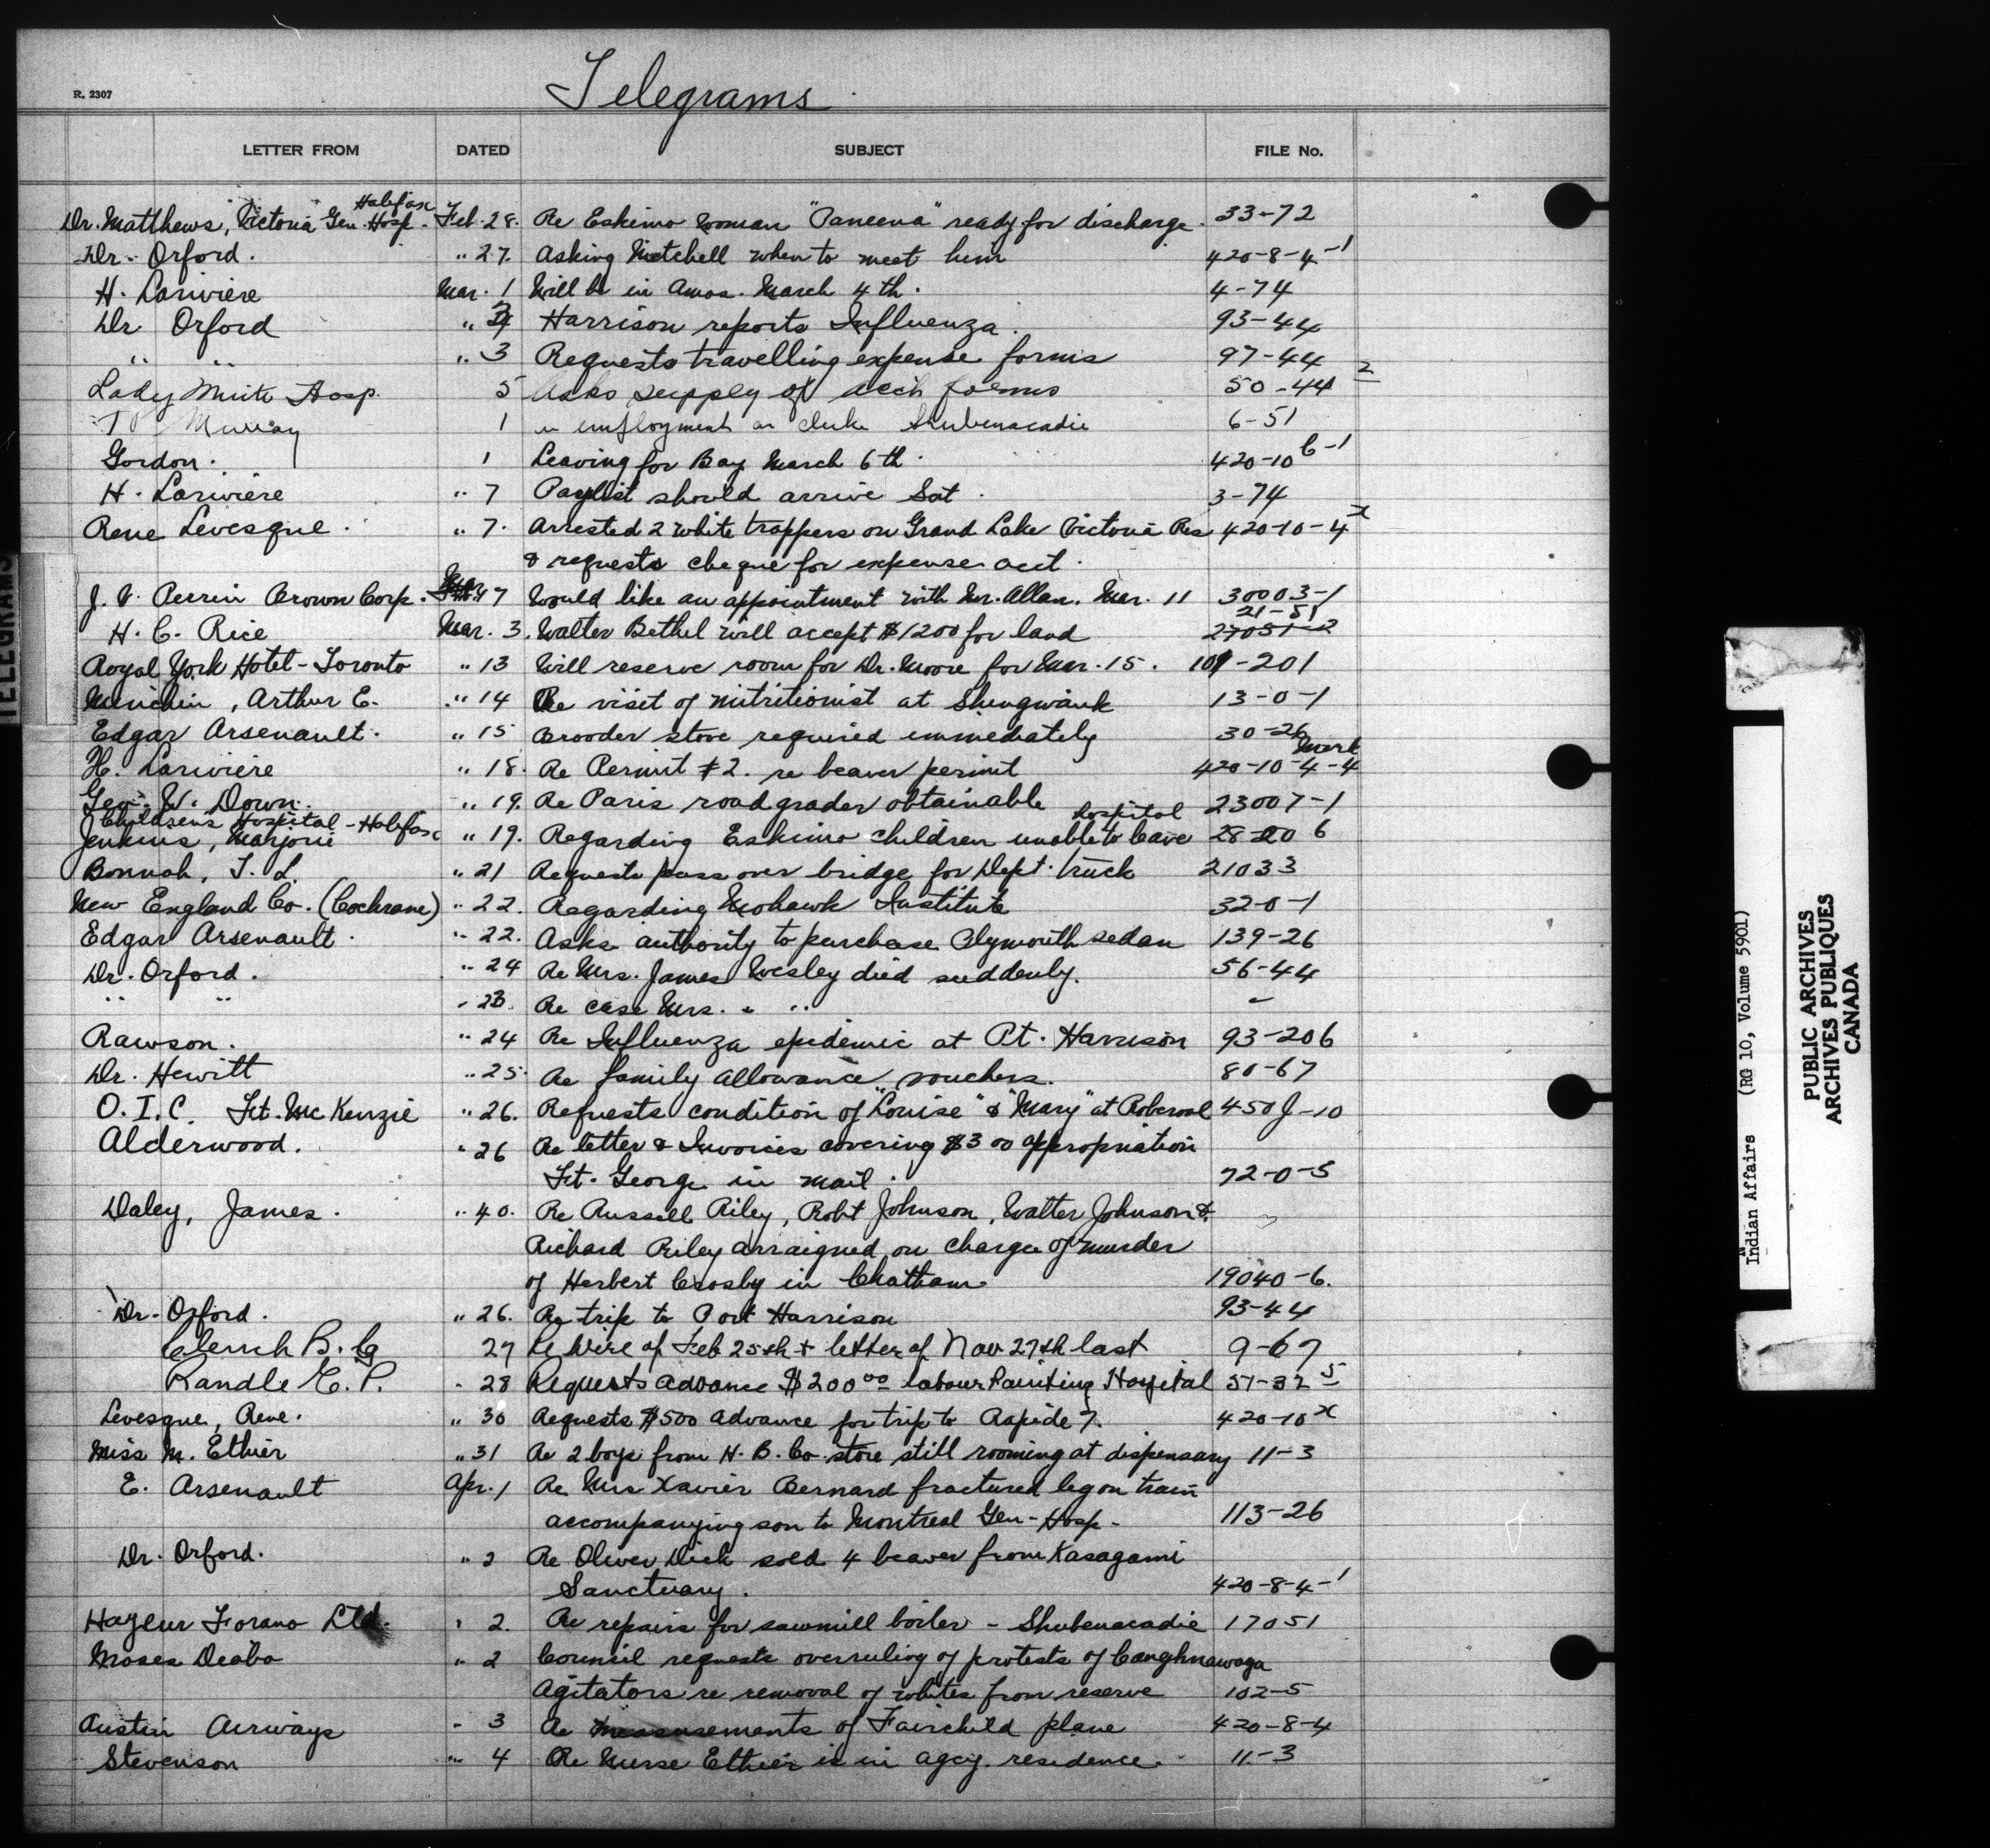 R. 2307
Telegrams
LETTER FROM DATED SUBJECT FILE No.
Halifax
Dr. Matthews, Victoria Gen. Hosp. Feb. 28. Re Eskimo woman "Paneena" ready for discharge. 33-72
Dr. Orford. " 27. Asking Mitchell when to meet him 420-8-4-1
H. Lariviere Mar. 1 Will be in Amos. March 4th. 4-74
Dr Orford " 3 Harrison reports Influenza. 93-44
" " " 3 Requests travelling expense forms 97-44
Lady Hosp. 5 Asks supply of forms 50-44 2
Murray 1 employment as Shubenacadie 6-51
Gordon. 1 Leaving for Bay March 6th. 420-10 6-1
H. Lariviere " 7 Paylist should arrive Sat. 3-74
Rene Levesque. " 7. Arrested 2 white trappers on Grand Lake Victoria Res 420-10-4 x
& requests cheque for expense acct.
J. V. Perrin Brown Corp. 7 Would like an appointment with Mr. Allan. Mar. 11 30003-1
21-51
H. C. Rice Mar. 3. Walter Bethel will accept $1200 for land 27051-2
Royal York Hotel - Toronto " 13 Will reserve room for Dr. Moore for Mar. 15. 109-201
Minchin, Arthur E. " 14 Re visit of nutritionist at Shingwauk 13-0-1
Edgar Arsenault. " 15 Brooder stove required immediately 30-26
H. Lariviere " 18. Re Permit #2. re beaver permit 420-10-4-4
Geo. W. Down. " 19. Re Paris road grader obtainable 23007-1
Children's Hospital - Halifax hospital
Jenkins, Marjorie " 19. Regarding Eskimo children unable to leave 28-20 6
Bonnah, T. L. " 21 Requests pass over bridge for Dept. truck 21033
New England Co. (Cochrane) " 22. Regarding Mohawk Institute 32-0-1
Edgar Arsenault. " 22. Asks authority to purchase Plymouth sedan 139-26
Dr. Orford. " 24 Re Mrs. James Wesley died suddenly. 56-44
" " " 23. Re case Mrs. " " -
Rawson. " 24 Re Influenza epidemic at Pt. Harrison 93-206
Dr. Hewitt " 25. Re family allowance vouchers. 80-67
O. I. C. Ft. McKenzie " 26. Requests condition of "Louise" & "Mary" at Roberval 450J-10
Alderwood. " 26 Re letter & Invoices covering $300 appropriation
Ft. George in mail. 72-0-5
Daley, James. " 40. Re Russell Riley, Robt Johnson, Walter Johnson &
Richard Riley arraigned on charge of murder
of Herbert Crosby in Chatham 19040-6.
Dr. Orford. " 26. Re trip to Port Harrison 93-44
Clench B. G 27 Re Wire of Feb 25th + letter of Nov 27th last 9-67
Randle E. P. " 28 Requests advance $200.00 labour Painting Hospital 51-32 5
Levesque, Rene. " 30 Requests $500 advance for trip to Rapide 7. 420-10 x
Miss M. Ethier " 31 Re 2 boys from H. B. Co. store still rooming at dispensary 11-3
E. Arsenault Apr. 1 Re Mrs Xavier Bernard fractured leg on train
accompanying son to Montreal Gen. Hosp. 113-26
Dr. Orford. " 2 Re Oliver Dick sold 4 beaver from Kasagami
Sanctuary. 420-8-4-1
Hayeur Forano Ltd. " 2. Re repairs for sawmill boiler - Shubenacadie 17051
Moses Diabo " 2 Council requests overruling of protests of Caughnawaga
Agitators re removal of whites from reserve 102-5
Austin Airways " 3 Re measurements of Fairchild plane 420-8-4
Stevenson " 4 Re Nurse Ethier is in agcy. residence. 11-3
TELEGRAMS
Indian Affairs (RG 10, Volume 5901)
PUBLIC ARCHIVES
ARCHIVES PUBLIQUES
CANADA